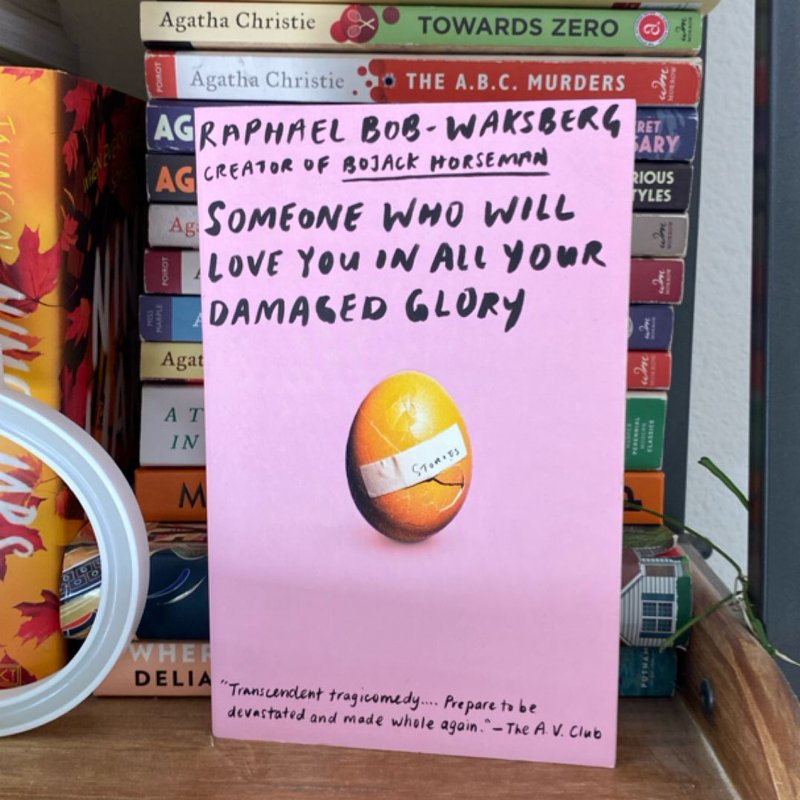 Agatha Christie TOWARDS ZERO a.
POIROT Agatha Christie THE A.B.C. MURDERS wm MORROW
RAPHAEL BOB-WAKSBERG
CREATOR OF BOJACK HORSEMAN
SOMEONE WHO WILL
LOVE YOU IN ALL YOUR
DAMAGED GLORY
STORIES
"Transcendent tragicomedy.... Prepare to be
devastated and made whole again." — The A. V. Club
AG
AG
Ag
POIROT A
MISS MARPLE A
Agat
A T
IN
M
WHER
DELIA
RIOUS
TYLES
HARPER
PERENNIAL
MODERN
CLASSICS